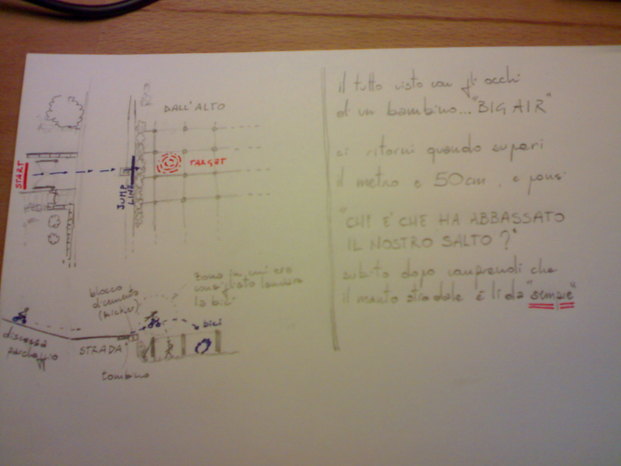 DALL'ALTO
START
TARGET
JUMP LINE
zona in cui era
consigliato lanciare
la bici
blocco
di cemento
(kicker)
bici
discesa
parcheggio
STRADA
tombino
il tutto visto con gli occhi
di un bambino... "BIG AIR"
ci ritorni quando superi
il metro e 50cm, e pensi
"CHI E' CHE HA ABBASSATO
IL NOSTRO SALTO?"
subito dopo comprendi che
il manto stradale è lì da "sempre"